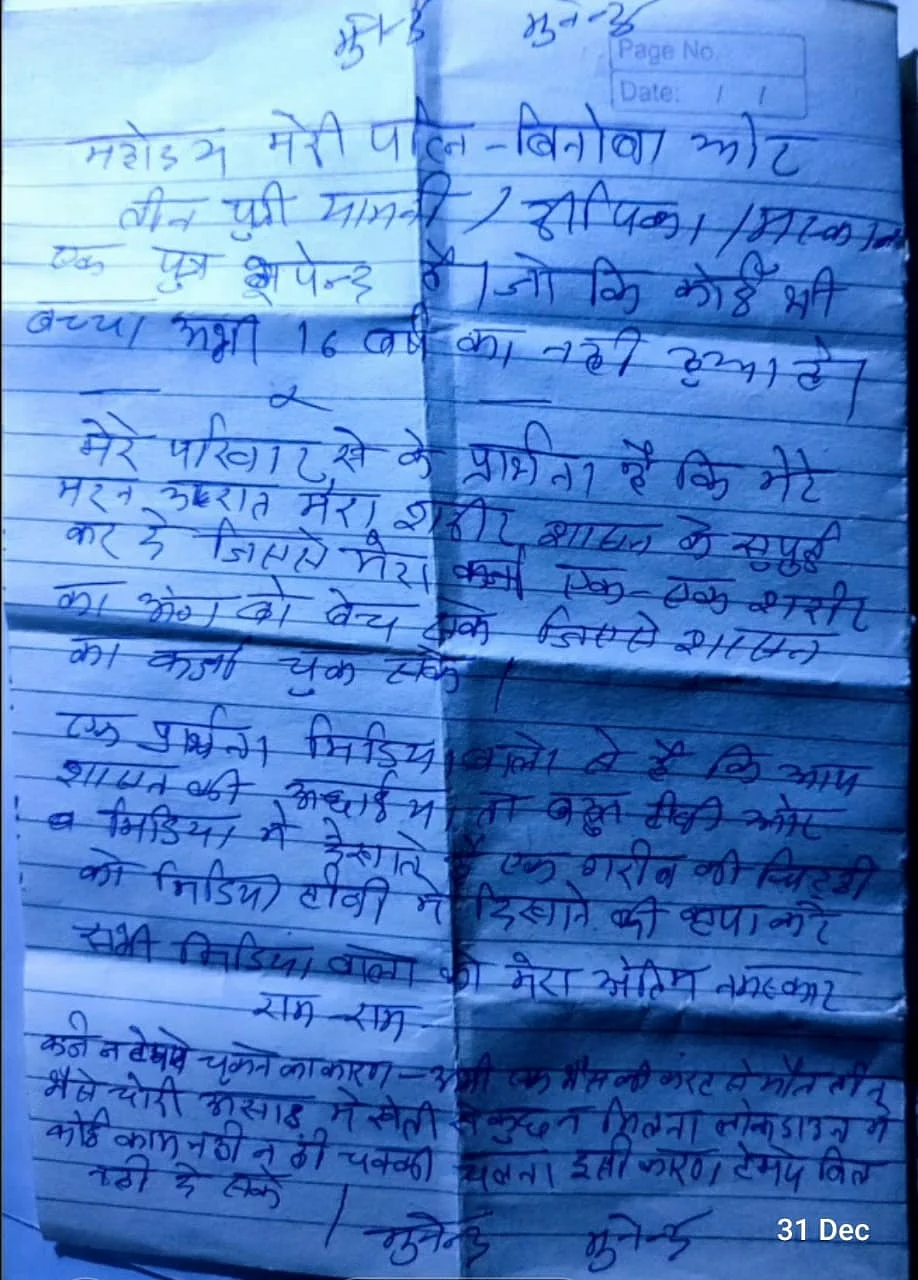 मुनेन्द्र मुनेन्द्र
Page No.
Date: / /
महोदय मेरी पत्नि - विनोबा ओर
तीन पुत्री मामनी / दीपिका / मस्कान
एक पुत्र भूपेन्द्र है। जो कि कोई भी
बच्चा अभी 16 वर्ष का नही हुआ है।
मेरे परिवार से के प्रार्थना है कि मेरे
मरन उपरात मेरा शरीर शासन के सुपुर्द
कर दे जिससे मेरा एक-एक शरीर
का अंग को बेच सके जिससे शासन
का कर्जा चुक सके।
एक प्रार्थना मिडिया वालो से है कि आप
शासन की अच्छाईया तो बहुत टीवी ओर
व मिडिया मे देखाते है एक गरीब की चिट्ठी
को मिडिया टीवी मे दिखाने की कृपा करे
सभी मिडिया वालो को मेरा अंतिम नमस्कार
राम-राम
कर्ज न चुकने का कारण - अभी एक भैस की करंट से मौत तीन
भैसे चोरी असाड मे खेती से कुछ न मिलना लोकडाउन मे
कोई काम नही न ही चक्की चलना इसी कारण टेमपे बिल
नही दे सके।
मुनेन्द्र मुनेन्द्र
31 Dec